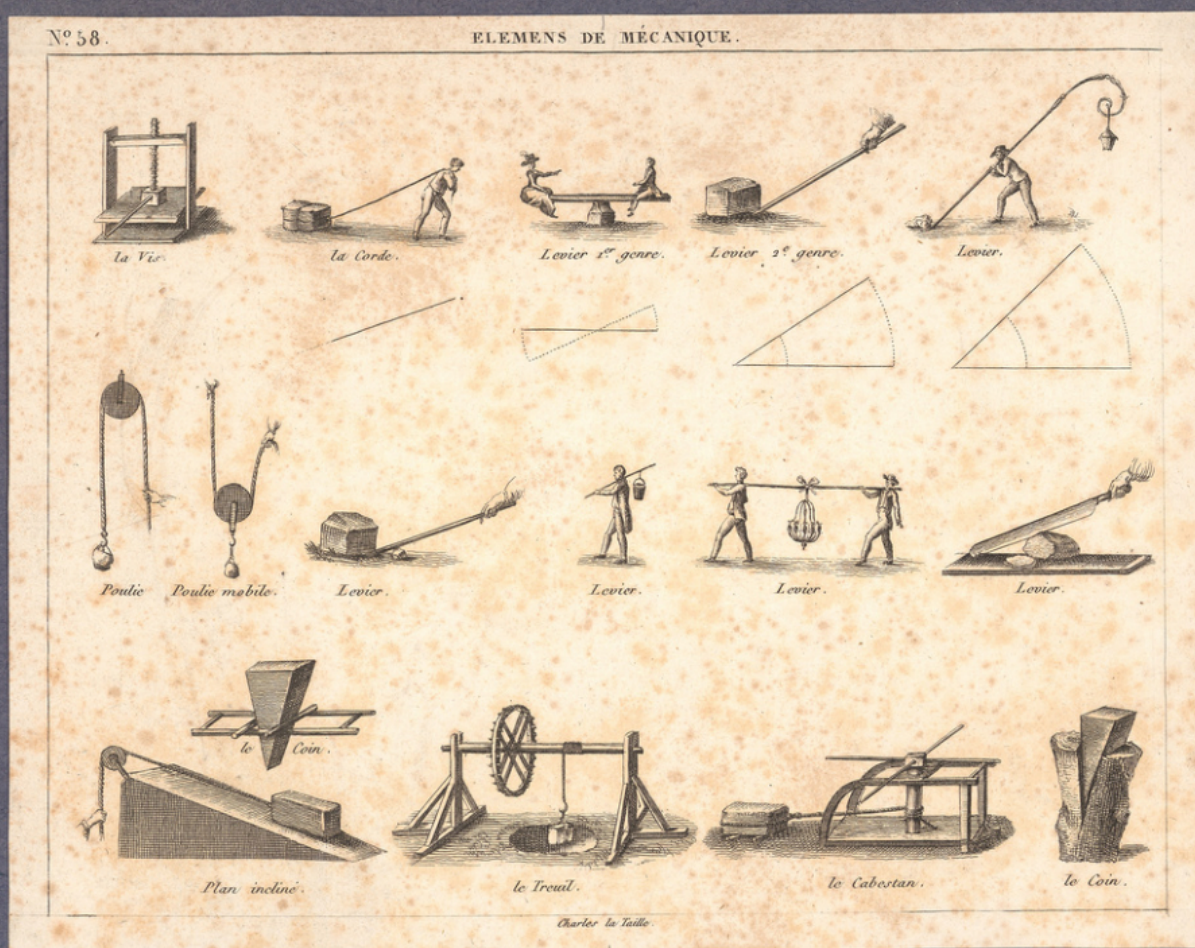 Nº 58.
ELEMENS DE MÉCANIQUE.
la Vis.
la Corde.
Levier 1er genre.
Levier 2e genre.
Levier.
Poulie
Poulie mobile.
Levier.
Levier.
Levier.
Levier.
le Coin.
Plan incliné.
le Treuil.
le Cabestan.
le Coin.
Charles la Taille.